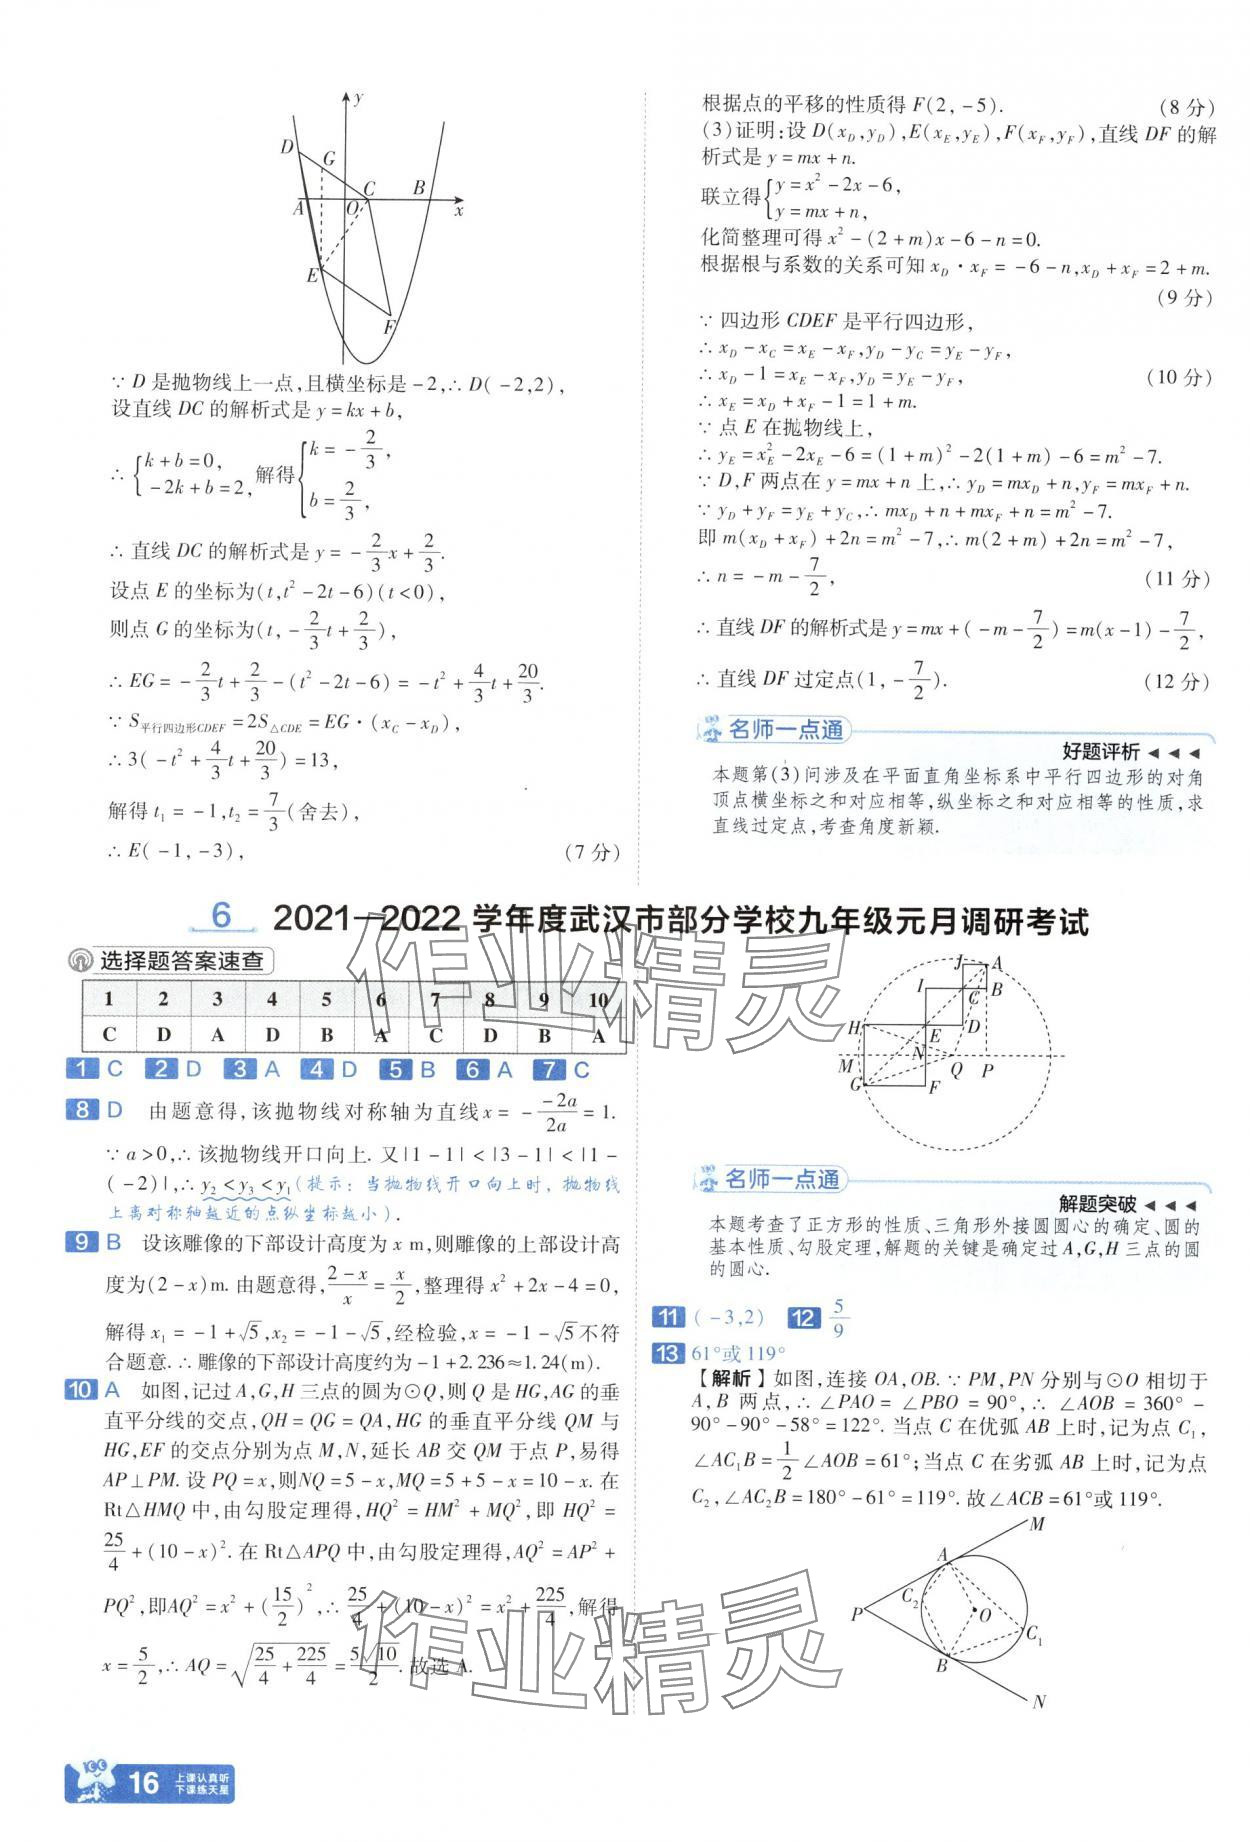 y
D
G
C
B
A
O
x
E
F
∵ D 是抛物线上一点,且横坐标是 -2,∴ D( -2,2),
设直线 DC 的解析式是 y = kx + b,
∴ { k + b = 0, -2k + b = 2, 解得 { k = -2/3, b = 2/3,
∴ 直线 DC 的解析式是 y = -2/3x + 2/3.
设点 E 的坐标为(t,t² - 2t - 6)(t < 0),
则点 G 的坐标为(t, -2/3t + 2/3),
∴ EG = -2/3t + 2/3 - (t² - 2t - 6) = -t² + 4/3t + 20/3.
∵ S平行四边形CDEF = 2S△CDE = EG·(x_C - x_D),
∴ 3( -t² + 4/3t + 20/3) = 13,
解得 t₁ = -1,t₂ = 7/3(舍去),
∴ E( -1, -3), (7 分)
根据点的平移的性质得 F(2, -5). (8 分)
(3)证明:设 D(x_D,y_D),E(x_E,y_E),F(x_F,y_F),直线 DF 的解
析式是 y = mx + n.
联立得 { y = x² - 2x - 6, y = mx + n,
化简整理可得 x² - (2 + m)x - 6 - n = 0.
根据根与系数的关系可知 x_D·x_F = -6 - n,x_D + x_F = 2 + m.
(9 分)
∵ 四边形 CDEF 是平行四边形,
∴ x_D - x_C = x_E - x_F,y_D - y_C = y_E - y_F,
∴ x_D - 1 = x_E - x_F,y_D = y_E - y_F, (10 分)
∴ x_E = x_D + x_F - 1 = 1 + m.
∵ 点 E 在抛物线上,
∴ y_E = x_E² - 2x_E - 6 = (1 + m)² - 2(1 + m) - 6 = m² - 7.
∵ D,F 两点在 y = mx + n 上,∴ y_D = mx_D + n,y_F = mx_F + n.
∵ y_D + y_F = y_E + y_C,∴ mx_D + n + mx_F + n = m² - 7.
即 m(x_D + x_F) + 2n = m² - 7,∴ m(2 + m) + 2n = m² - 7,
∴ n = -m - 7/2, (11 分)
∴ 直线 DF 的解析式是 y = mx + ( -m - 7/2) = m(x - 1) - 7/2,
∴ 直线 DF 过定点(1, -7/2). (12 分)
名师一点通
好题评析 ◀ ◀ ◀
本题第(3)问涉及在平面直角坐标系中平行四边形的对角
顶点横坐标之和对应相等,纵坐标之和对应相等的性质,求
直线过定点,考查角度新颖.
6 2021—2022 学年度武汉市部分学校九年级元月调研考试
选择题答案速查
1 2 3 4 5 6 7 8 9 10
C D A D B A C D B A
1 C 2 D 3 A 4 D 5 B 6 A 7 C
8 D 由题意得,该抛物线对称轴为直线 x = - -2a/2a = 1.
∵ a > 0,∴ 该抛物线开口向上. 又|1 - 1| < |3 - 1| < |1 -
( -2)|,∴ y₂ < y₃ < y₁(提示:当抛物线开口向上时,抛物线
上离对称轴越近的点纵坐标越小).
9 B 设该雕像的下部设计高度为 x m,则雕像的上部设计高
度为(2 - x)m. 由题意得,(2 - x)/x = x/2,整理得 x² + 2x - 4 = 0,
解得 x₁ = -1 + √5,x₂ = -1 - √5,经检验,x = -1 - √5不符
合题意. ∴ 雕像的下部设计高度约为 -1 + 2.236 ≈ 1.24(m).
10 A 如图,记过 A,G,H 三点的圆为⊙Q,则 Q 是 HG,AG 的垂
直平分线的交点,QH = QG = QA,HG 的垂直平分线 QM 与
HG,EF 的交点分别为点 M,N,延长 AB 交 QM 于点 P,易得
AP⊥PM. 设 PQ = x,则NQ = 5 - x,MQ = 5 + 5 - x = 10 - x. 在
Rt△HMQ 中,由勾股定理得,HQ² = HM² + MQ²,即 HQ² =
25/4 + (10 - x)². 在 Rt△APQ 中,由勾股定理得,AQ² = AP² +
PQ²,即AQ² = x² + (15/2)²,∴ 25/4 + (10 - x)² = x² + 225/4,解得
x = 5/2,∴ AQ = √(25/4 + 225/4) = 5√10/2. 故选 A.
J
A
I
B
C
H
E
D
M
N
Q
P
G
F
名师一点通
解题突破 ◀ ◀ ◀
本题考查了正方形的性质、三角形外接圆圆心的确定、圆的
基本性质、勾股定理,解题的关键是确定过 A,G,H 三点的圆
的圆心.
11 ( -3,2) 12 5/9
13 61°或 119°
【解析】如图,连接 OA,OB. ∵ PM,PN 分别与⊙O 相切于
A,B 两点,∴ ∠PAO = ∠PBO = 90°,∴ ∠AOB = 360° -
90° - 90° - 58° = 122°. 当点 C 在优弧 AB 上时,记为点 C₁,
∠AC₁B = 1/2∠AOB = 61°;当点 C 在劣弧 AB 上时,记为点
C₂,∠AC₂B = 180° - 61° = 119°. 故∠ACB = 61°或 119°.
M
A
C₂
P
O
C₁
B
N
作业精灵
作业精灵
16 上课认真听
下课练天星